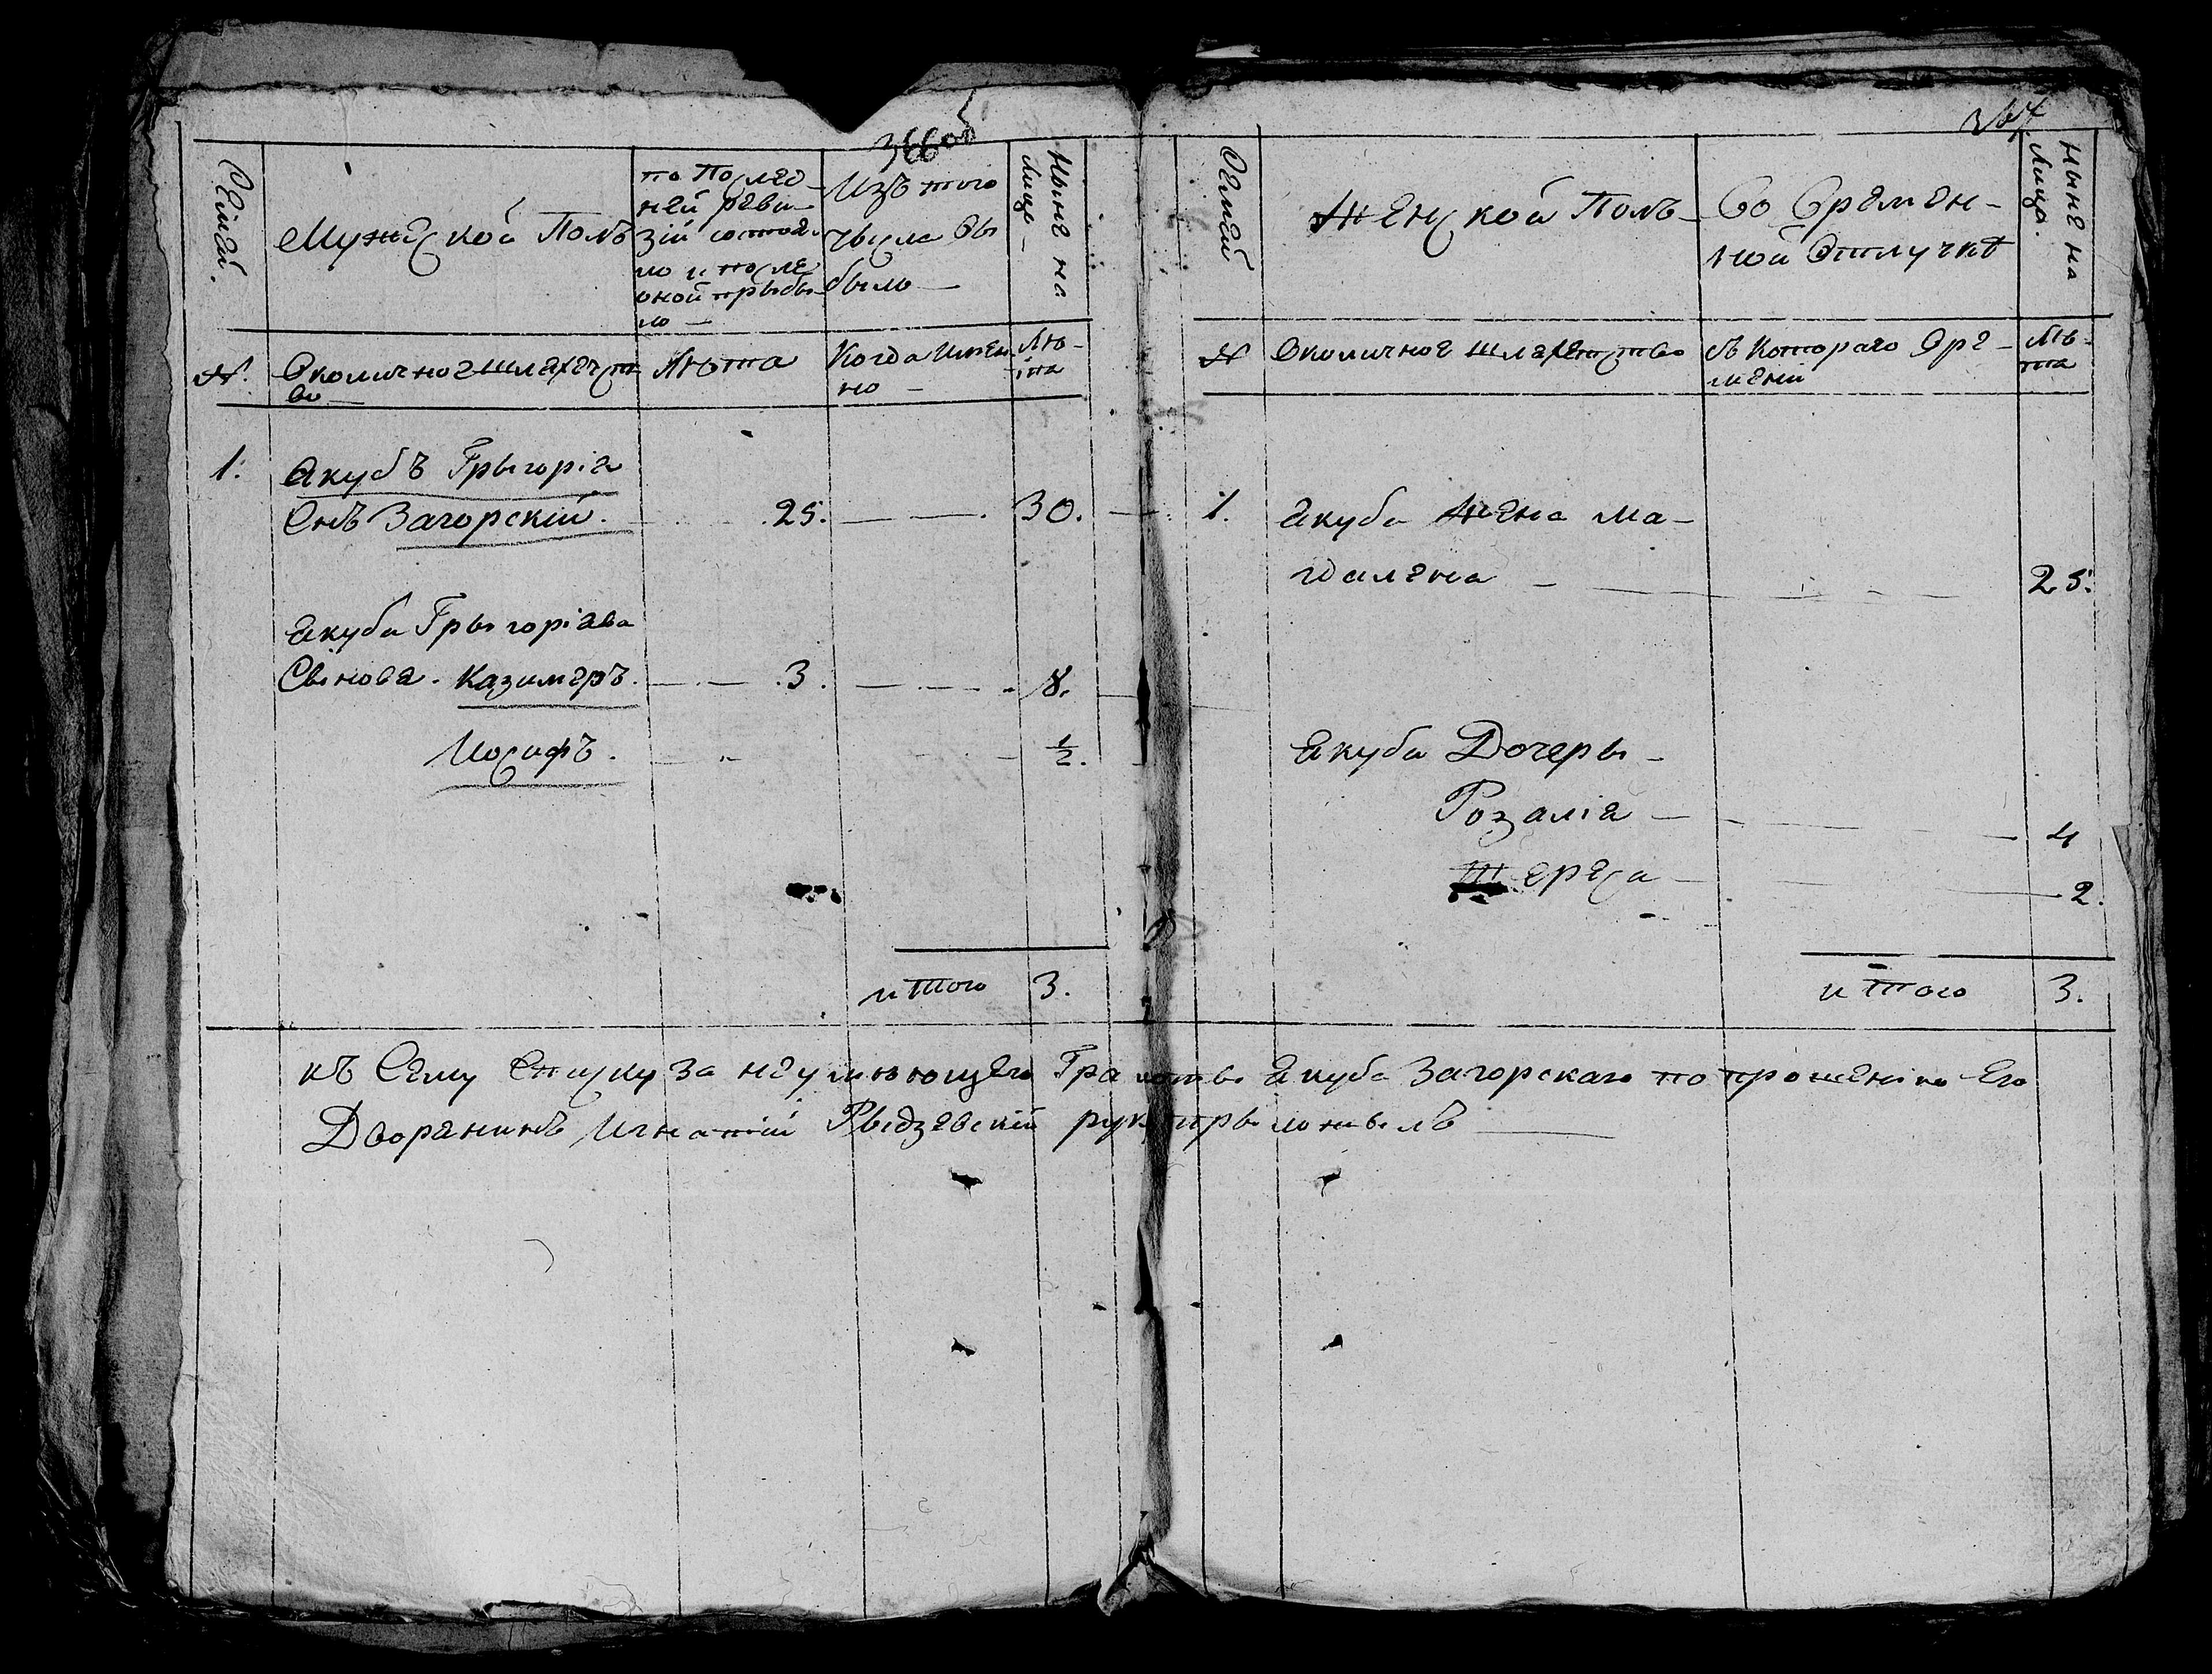 366об
Семей.
Мужеской Полъ
по Послед-
ней реви-
зіи состоя-
ло и после
оной прыбы-
ло —
Изъ того
чысла вы
было —
Ныне на
лице —
№.
Околичное Шляхетст-
во —
Лѣта
Когда Имен-
но —
Лѣ-
та
1.
Якубъ Грыгорія
Снъ Загорскій. 25. 30.
Якуба Грыгоріева
Сынове. Казимеръ. 3. 8.
Иосифъ. 1/2.
итого 3.
367
Семей
Женской Полъ
Во Времен-
ной Отлучкѣ
Ныне на
лице.
№
Околичное Шляхетство
съ Котораго Вре-
мени
Лѣ-
та
1. Якуба Жена Ма-
гдалена 25.
Якуба Дочеры -
Розалія — 4
Тереса — 2.
итого 3.
къ Сему Списку за неумеющего Грамоты Якуба Загорскаго по прошению Его
Дворянинъ Игнатій Рыдзевскій руку прыложылъ